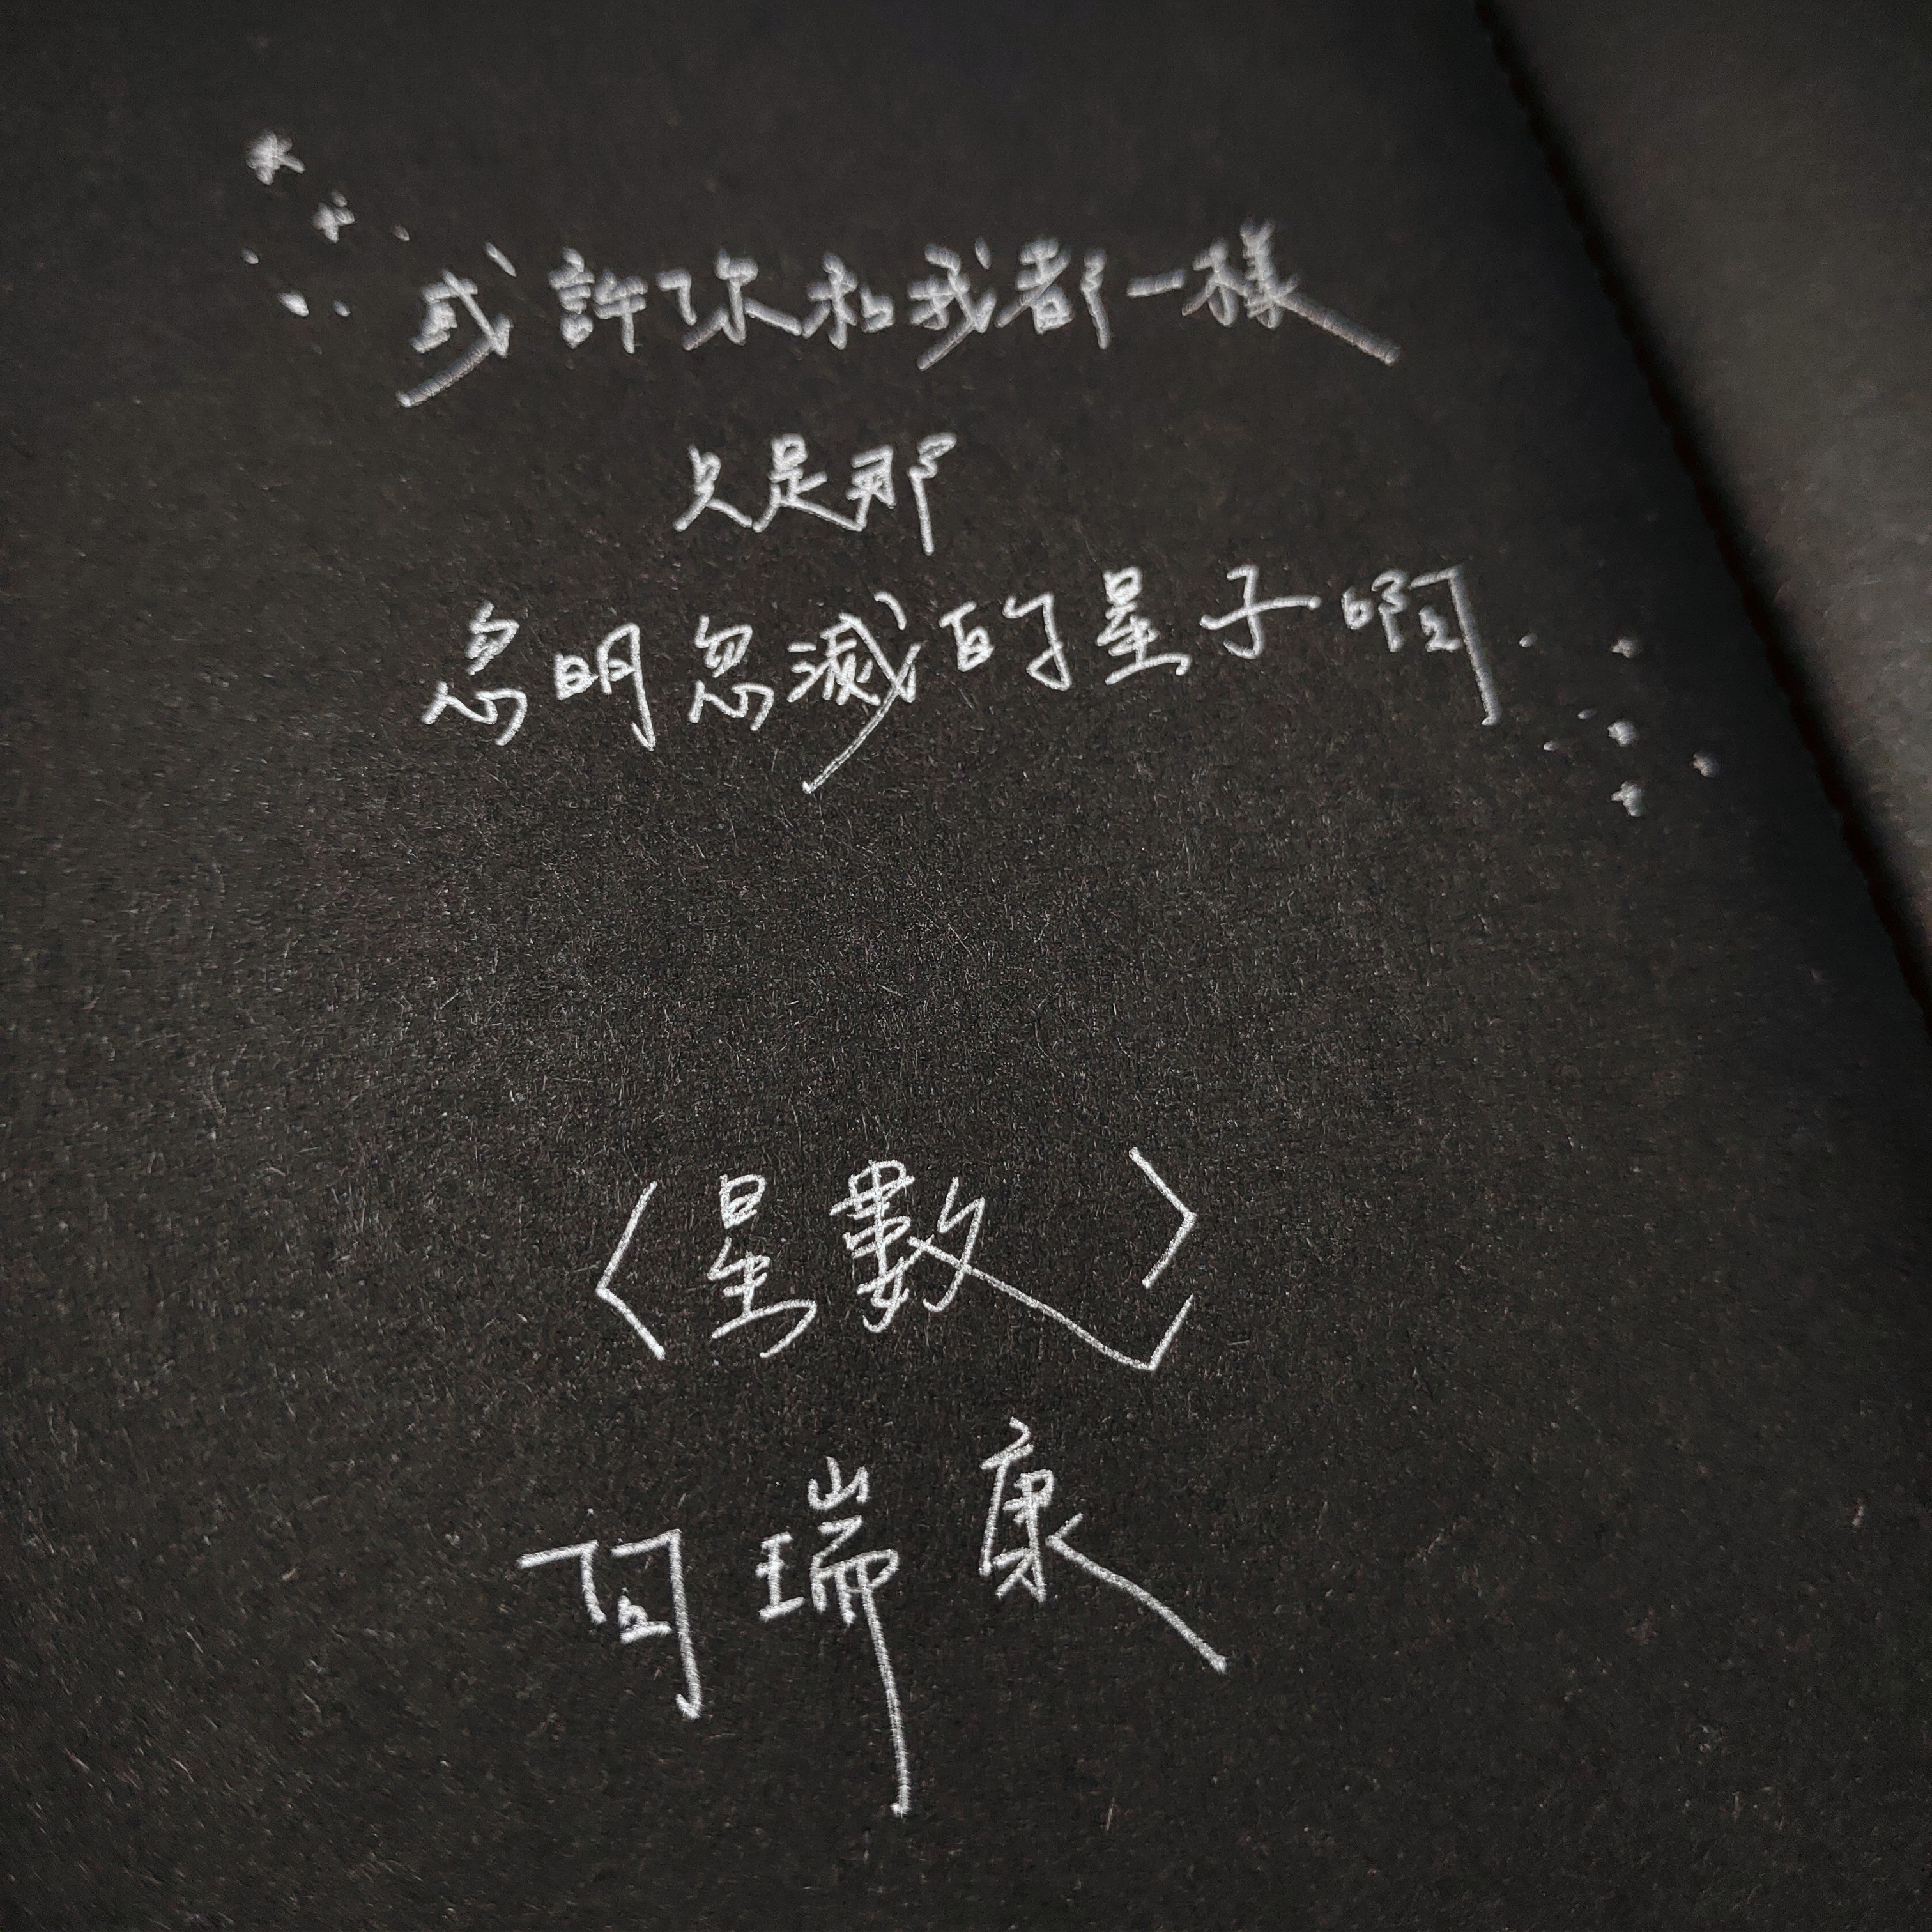 或許你和我都一樣
只是那
忽明忽滅的星子啊
〈星數〉
阿瑞康